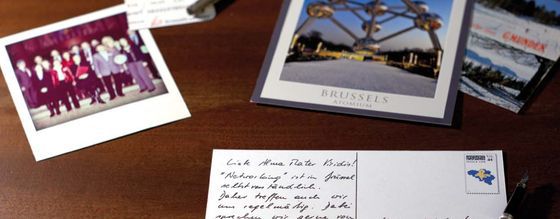 BRUSSELS
ATOMIUM
GMUNDEN
Liebe Alma Mater Viridis!
"Networking" ist in Brüssel
selbstverständlich.
Daher treffen auch wir
uns regelmäßig. Dabei
sprechen wir gerne von